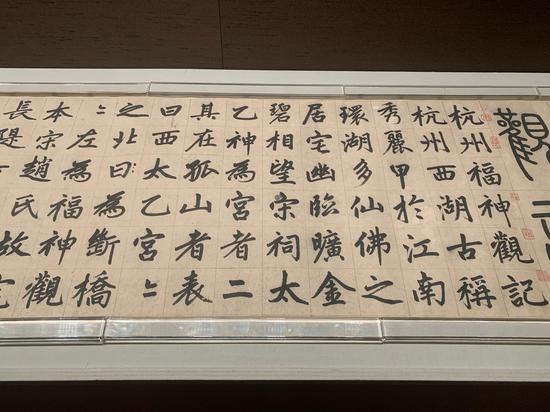 杭州福神觀記
杭州西湖古稱
秀麗甲於江南
環湖多仙佛之
居宅幽臨曠金
碧相望宗祠太
乙神為宮者二
其在孤山者表
曰西太乙宮〻
之北曰為斷橋
〻左為福神觀
本宋趙氏故宅
長堤